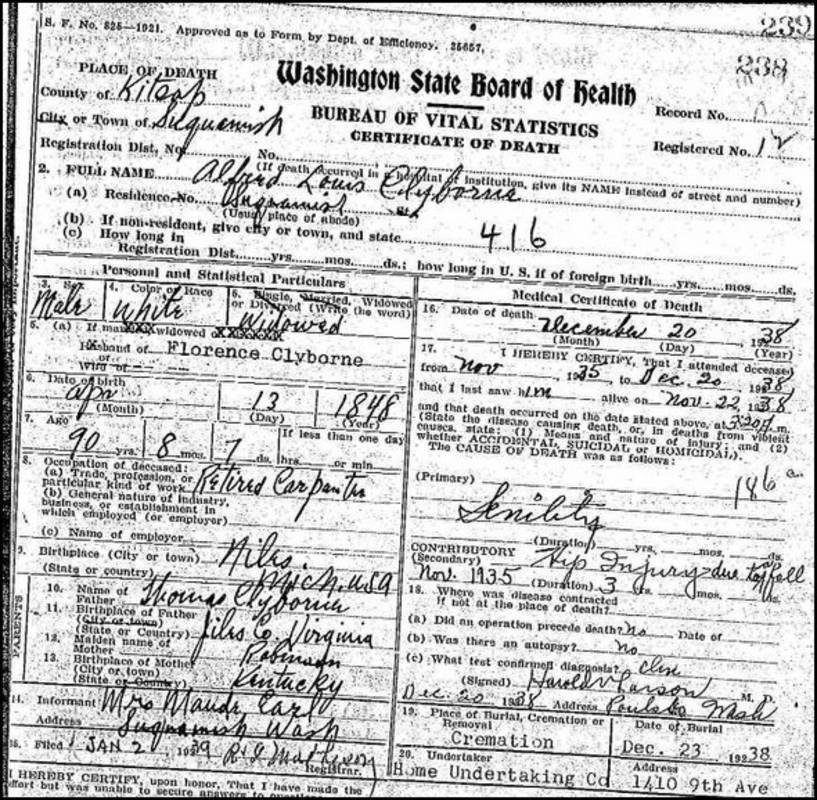 239
S. F. No. 525—1921. Approved as to Form by Dept. of Efficiency. 25657.
238
PLACE OF DEATH
Washington State Board of Health
County of Kitsap
BUREAU OF VITAL STATISTICS
Record No.
City or Town of Suquamish
CERTIFICATE OF DEATH
Registered No. 12
Registration Dist. No. No.
(If death occurred in a hospital or institution, give its NAME instead of street and number)
2. FULL NAME Alfred Louis Clyborne
(a) Residence No. Suquamish St.
(Usual place of abode)
(b) If non-resident, give city or town, and state 416
(c) How long in
Registration Dist. yrs. mos. ds.; how long in U. S. if of foreign birth yrs. mos. ds.
Personal and Statistical Particulars
3. Sex
Male
4. Color or Race
White
5. Single, Married, Widowed
or Divorced (Write the word)
Widowed
5. (a) If married widowed or
Husband of Florence Clyborne
or
Wife of
6. Date of birth
Apr 13 1848
(Month) (Day) (Year)
7. Age
90 yrs. 8 mos. 7 ds.
If less than one day
hrs. or min.
8. Occupation of deceased:
(a) Trade, profession, or
particular kind of work Retired Carpenter
(b) General nature of industry,
business, or establishment in
which employed (or employer)
(c) Name of employer
9. Birthplace (City or town) Niles.
(State or country) Mich. USA
PARENTS
10. Name of
Father Thomas Clyborne
11. Birthplace of Father
(City or town)
(State or Country) Jiles Co. Virginia
12. Maiden name of
Mother Robinson
13. Birthplace of Mother
(City or town)
(State or Country) Kentucky
14. Informant Mrs Maude Earl
Address Suquamish Wash
15. Filed JAN 2 1939
Registrar.
I HEREBY CERTIFY, upon honor, That I have made the
effort but was unable to secure answers to
Medical Certificate of Death
16. Date of death December 20, 1938
(Month) (Day) (Year)
17. I HEREBY CERTIFY, That I attended deceased
from Nov 1935, to Dec. 20, 1938
that I last saw him alive on Nov. 22, 1938
and that death occurred on the date stated above, at m.
(State the disease causing death, or, in deaths from violent
causes, state: (1) Means and nature of injury; and (2)
whether ACCIDENTAL, SUICIDAL or HOMICIDAL).
The CAUSE OF DEATH was as follows:
(Primary) 186 a
Senility
(Duration) yrs. mos. ds.
CONTRIBUTORY Hip Injury due to fall
(Secondary)
Nov. 1935 (Duration) 3 yrs. mos. ds.
18. Where was disease contracted
if not at the place of death?
(a) Did an operation precede death? No Date of
(b) Was there an autopsy? No
(c) What test confirmed diagnosis? Clin
(Signed) Harold V Larson M. D.
Dec. 20 1938 Address Poulsbo Wash
19. Place of Burial, Cremation or
Removal
Cremation
Date of Burial
Dec. 23 1938
20. Undertaker
Home Undertaking Co
Address
1410 9th Ave